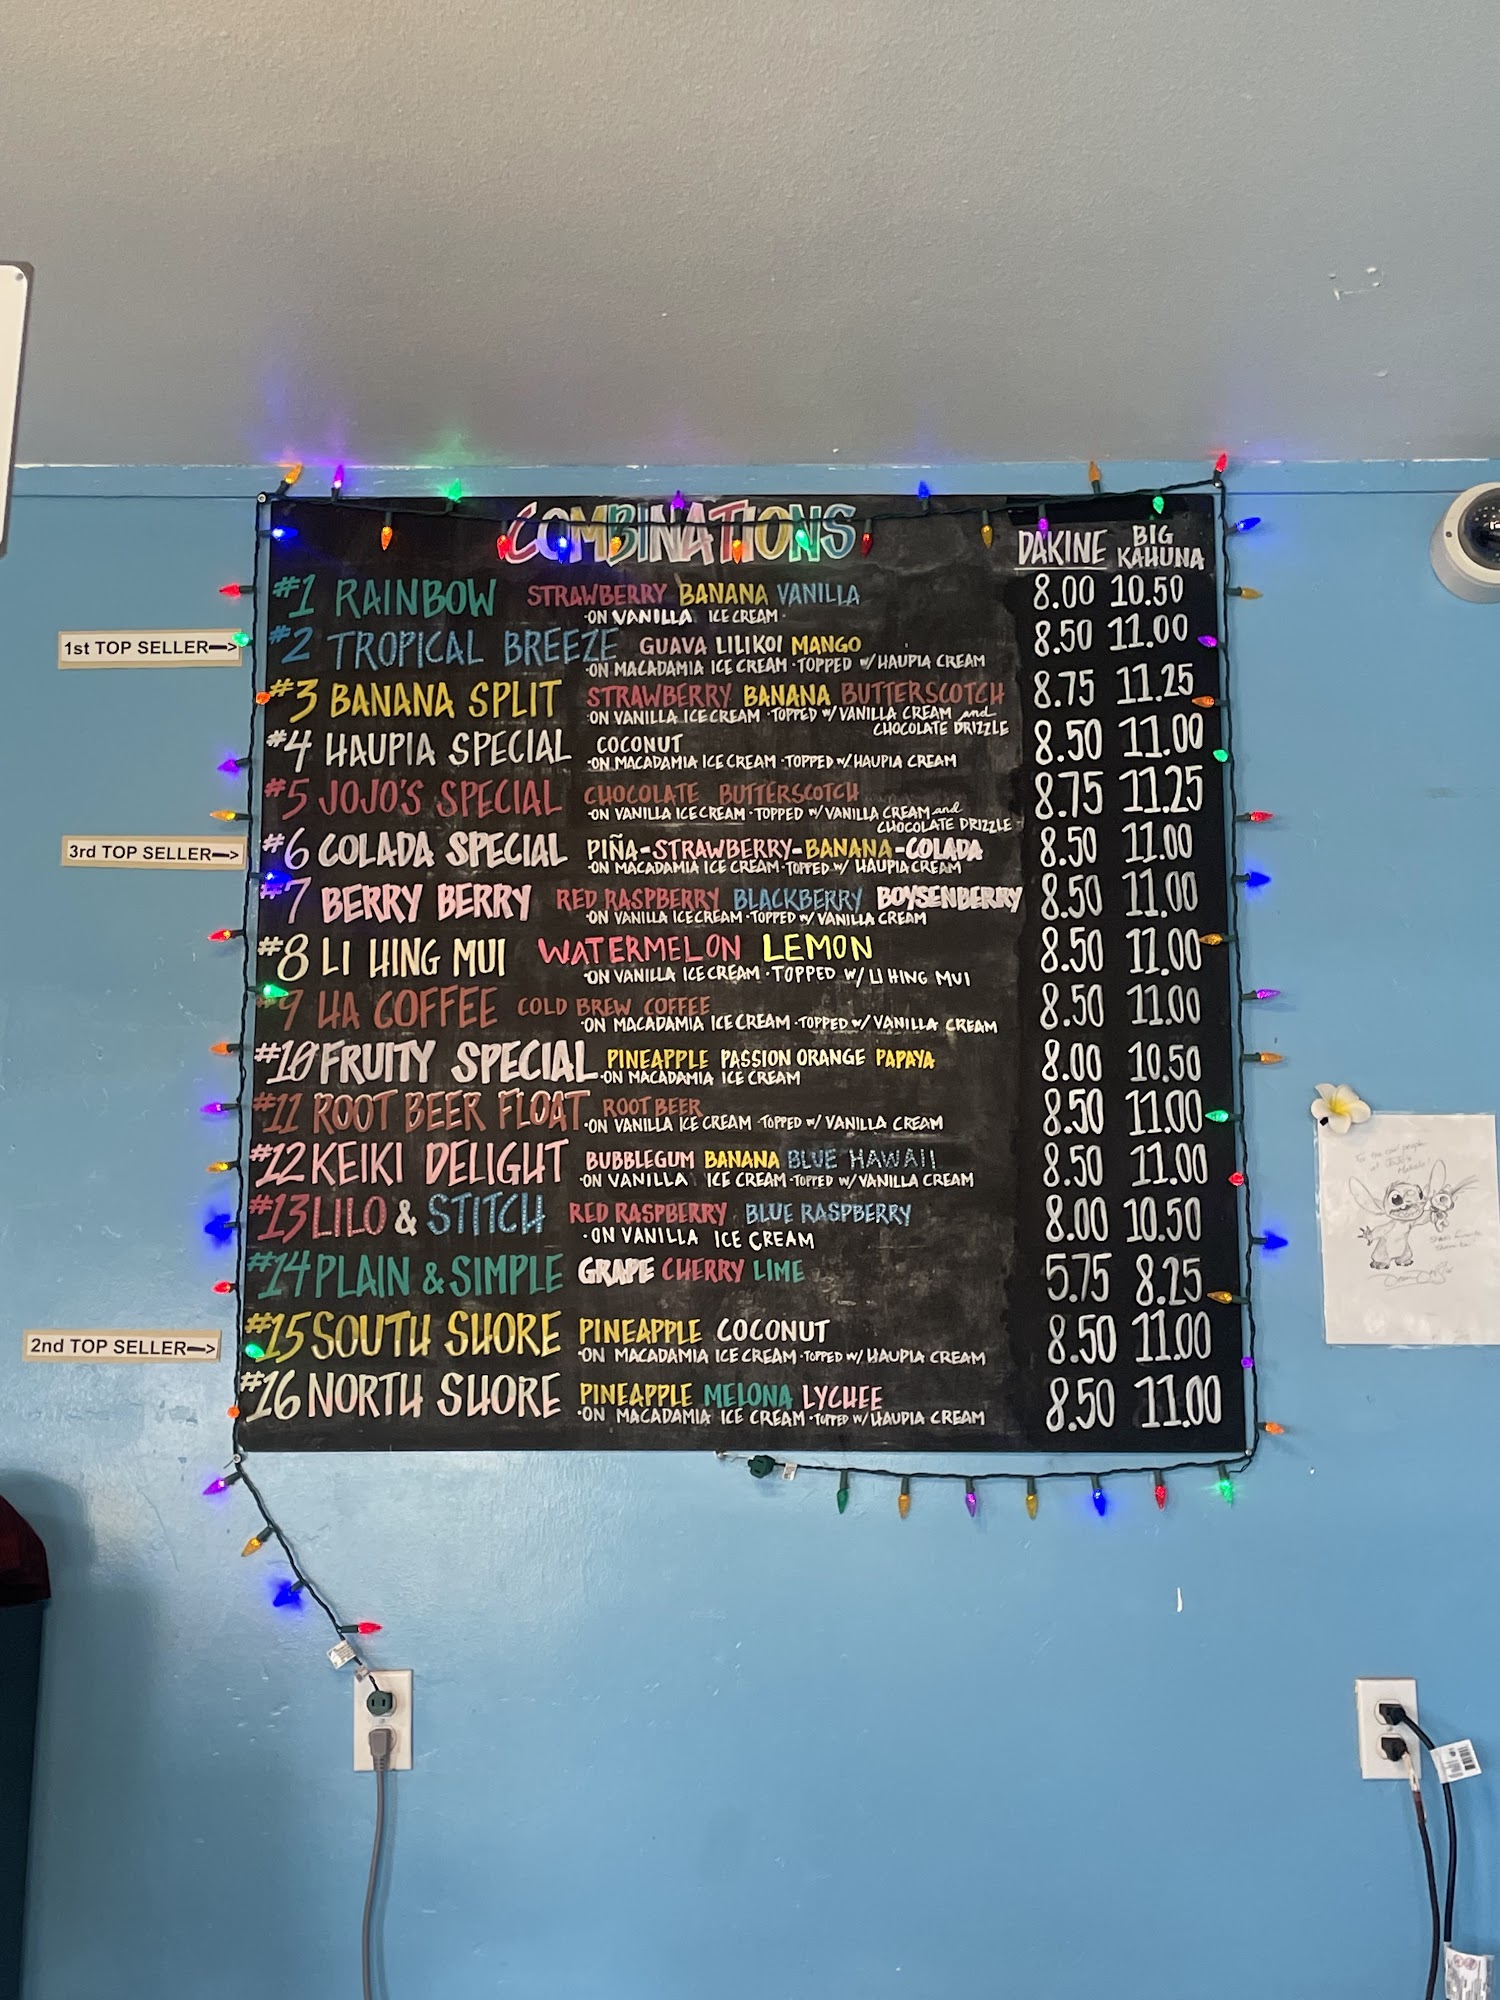 COMBINATIONS
DAKINE BIG KAHUNA
#1 RAINBOW STRAWBERRY BANANA VANILLA 8.00 10.50
·ON VANILLA ICE CREAM·
1st TOP SELLER-->
#2 TROPICAL BREEZE GUAVA LILIKOI MANGO 8.50 11.00
·ON MACADAMIA ICE CREAM ·TOPPED W/ HAUPIA CREAM
#3 BANANA SPLIT STRAWBERRY BANANA BUTTERSCOTCH 8.75 11.25
·ON VANILLA ICE CREAM ·TOPPED W/ VANILLA CREAM and
CHOCOLATE DRIZZLE
#4 HAUPIA SPECIAL COCONUT 8.50 11.00
·ON MACADAMIA ICE CREAM ·TOPPED W/ HAUPIA CREAM
#5 JOJO'S SPECIAL CHOCOLATE BUTTERSCOTCH 8.75 11.25
·ON VANILLA ICE CREAM ·TOPPED W/ VANILLA CREAM and
CHOCOLATE DRIZZLE
3rd TOP SELLER-->
#6 COLADA SPECIAL PIÑA-STRAWBERRY-BANANA-COLADA 8.50 11.00
·ON MACADAMIA ICE CREAM ·TOPPED W/ HAUPIA CREAM
#7 BERRY BERRY RED RASPBERRY BLACKBERRY BOYSENBERRY 8.50 11.00
·ON VANILLA ICE CREAM ·TOPPED W/ VANILLA CREAM
#8 LI HING MUI WATERMELON LEMON 8.50 11.00
·ON VANILLA ICE CREAM ·TOPPED W/ LI HING MUI
#9 HA COFFEE COLD BREW COFFEE 8.50 11.00
·ON MACADAMIA ICE CREAM ·TOPPED W/ VANILLA CREAM
#10 FRUITY SPECIAL PINEAPPLE PASSION ORANGE PAPAYA 8.00 10.50
·ON MACADAMIA ICE CREAM
#11 ROOT BEER FLOAT ROOT BEER 8.50 11.00
·ON VANILLA ICE CREAM ·TOPPED W/ VANILLA CREAM
#12 KEIKI DELIGHT BUBBLEGUM BANANA BLUE HAWAII 8.50 11.00
·ON VANILLA ICE CREAM ·TOPPED W/ VANILLA CREAM
#13 LILO & STITCH RED RASPBERRY BLUE RASPBERRY 8.00 10.50
·ON VANILLA ICE CREAM
#14 PLAIN & SIMPLE GRAPE CHERRY LIME 5.75 8.25
2nd TOP SELLER-->
#15 SOUTH SHORE PINEAPPLE COCONUT 8.50 11.00
·ON MACADAMIA ICE CREAM ·TOPPED W/ HAUPIA CREAM
#16 NORTH SHORE PINEAPPLE MELONA LYCHEE 8.50 11.00
·ON MACADAMIA ICE CREAM ·TOPPED W/ HAUPIA CREAM